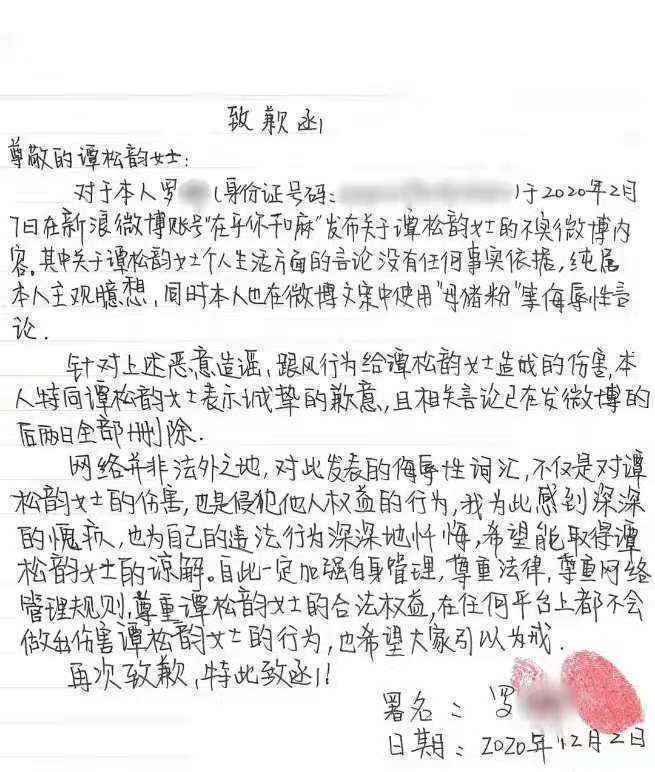 致歉函
尊敬的谭松韵女士:
对于本人罗 (身份证号码: )于2020年2月
7日在新浪微博账号"在乎你和麻"发布关于谭松韵女士的不实微博内
容。其中关于谭松韵女士个人生活方面的言论没有任何事实依据,纯属
本人主观臆想,同时本人也在微博文案中使用"母猪粉"等侮辱性言
论.
针对上述恶意造谣、跟风行为给谭松韵女士造成的伤害,本
人特向谭松韵女士表示诚挚的歉意,且相关言论已在发微博的
后两日全部删除.
网络并非法外之地,对此发表的侮辱性词汇,不仅是对谭
松韵女士的伤害,也是侵犯他人权益的行为,我为此感到深深
的愧疚,也为自己的违法行为深深地忏悔,希望能取得谭
松韵女士的谅解.自此一定加强自身管理,尊重法律,尊重网络
管理规则,尊重谭松韵女士的合法权益,在任何平台上都不会
做出伤害谭松韵女士的行为,也希望大家引以为戒.
再次致歉,特此致函!
署名:罗
日期:2020年12月2日